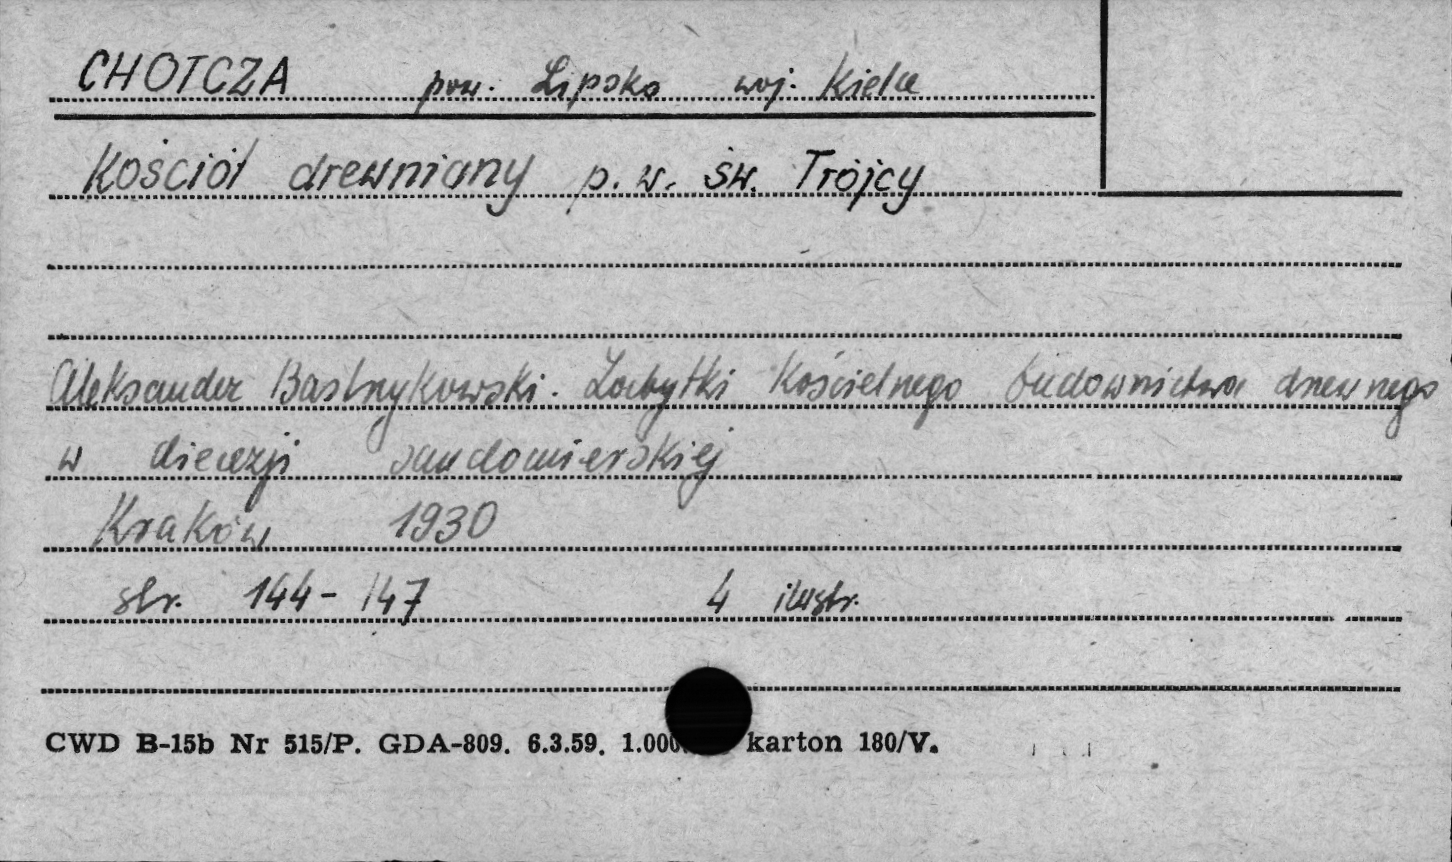 CHOTCZA pow. Lipsko woj. Kielce
Kościół drewniany p.w. św. Trójcy
Aleksander Bastrzykowski. Zabytki Kościelnego budownictwa drewnego
w diecezji sandomierskiej
Kraków 1930
str. 144-147 4 ilustr.
CWD B-15b Nr 515/P. GDA-809. 6.3.59. 1.000 karton 180/V.